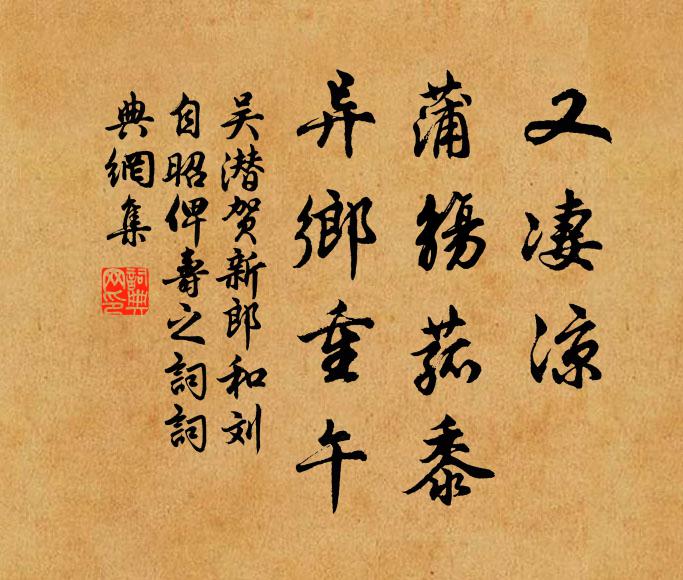 又凄涼
蒲觴菰黍
异鄉重午
吴潜贺新郎和刘
自昭俾壽之詞詞
典網集
詞典
网印